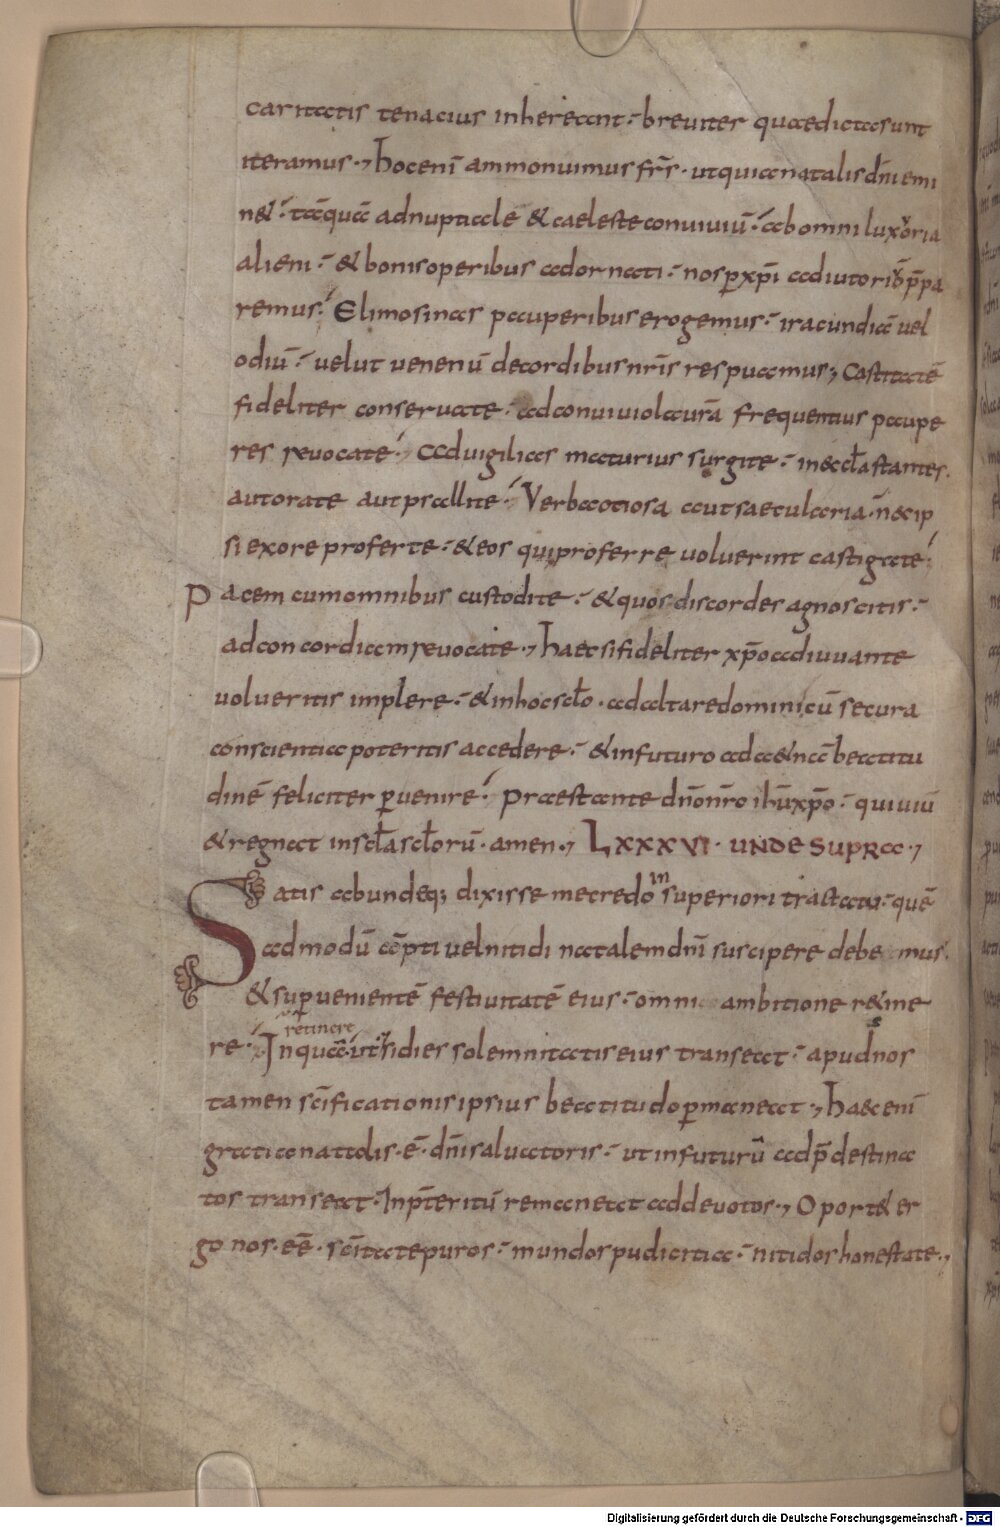 caritatis tenacius inhereant · breuiter quaedictasunt
iteramus · hocenī ammonuimus fr̄s · utquianatalis dn̄i emi
n& · tāquā adnuptiale & caeleste conuiuiū · ab omni luxoria
alieni · & bonisoperibus adornati · nos ꝑ xp̄i adiutoriū p̄pa
remus · Elimosinas pauperibus erogemus · iracundiā uel
odiū · uelut uenenū decordibus nr̄is respuamus; Castitatē
fideliter conseruate · adconuiuiolaurā frequentius paupe
res reuocate · Aduigilias maturius surgite · in&cl̄astantes ·
autorate autpsallite · Verbaotiosa autsaetularia · n̄&ip
siexore proferte · &eos quiproferre uoluerint castigate ·
Pacem cumomnibus custodite · &quos discordes agnoscitis ·
adconcordiam reuocate · haecsifideliter xp̄oadiuuante
uolueritis implere · &inhocscl̄o · adaltaredominicū secura
conscientia poteritis accedere · &infuturo ada&nā beatitu
dinē feliciter ꝑuenire · Praestante dn̄onr̄o ih̄uxp̄o · quiuiū
&regnat inscl̄ascl̄orū · amen · LXXXVI · UNDE SUPRA ·
Satis abundeq; dixisse mecredo in superiori tractatu · quē
admodū āpti uelnitidi natalemdn̄i suscipere debemus ·
&suꝑuenientē festiuitatē eius · omni ambitione r&ine
retinere
re · Inquā · utsidies solemnitatis eius transeat · apudnos
tamen sc̄ificationisipsius beatitudo ꝑmaneat · ha&enī
gratia natolis · ē · dn̄isaluatoris · ut infuturū adp̄destina
tos transeat · Inp̄teritū remaneat addeuotos · Oport& er
go nos · eē · sc̄itatepuros · mundospudicitia · nitidoshonestate ·
Digitalisierung gefördert durch die Deutsche Forschungsgemeinschaft - DFG